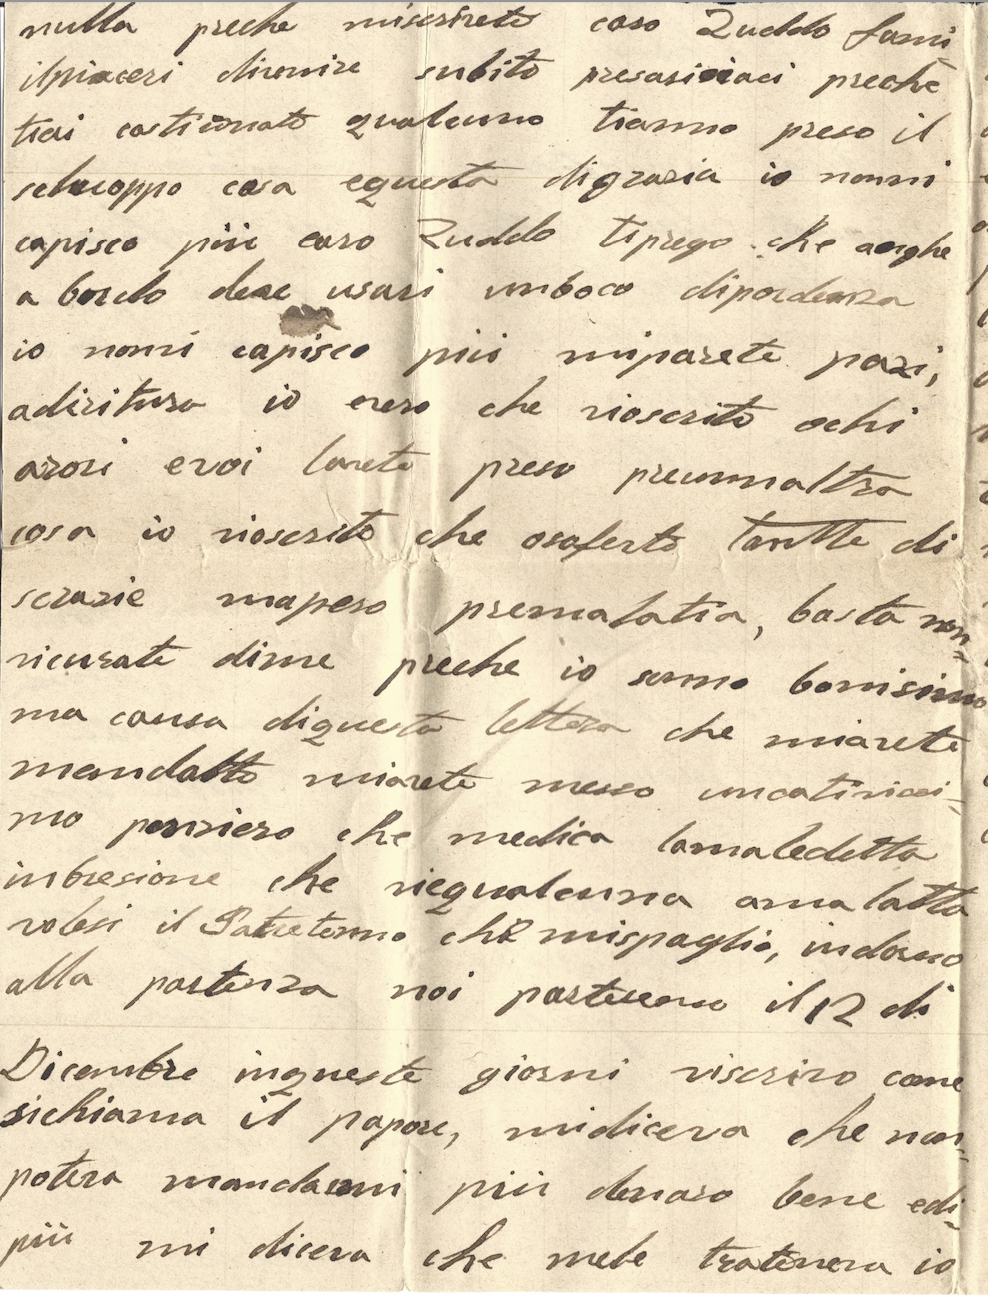 nulla preche miscrirete caso Zuddo fami
ilpiaceri diremire subito presasiviaci preche
tiai costionato qualcuno tianno preso il
seluceoppo cosa equesta digrazia io nonni
capisco più caro Zuddo tiprego che anghe
a bordo deve usari unboco dipordenza
io nonni capisco più miparete pazi,
adiritura io erero che vioscrito ochi
arosi evoi lavete preso preunnaltra
cosa io vioscrito che osoferto tantte di
scrazie maperso premalatia, basta non-
vicurate dime preche io sonno bonisimo
ma causa diquesta lettera che miavete
mandatto miavete messo uncativissi-
mo penziero che medica lamaledetta
inbresione che viequalcuna amalatta
volesi il Patretorno che mispaglio, indorno
alla partenza noi parteremo il 12 di
Dicembre inqueste giorni viscriro come
sichiama il papore, midiceva che non-
poteva mandarmi più denaro bene edi-
più mi diceva che mele trateneva io